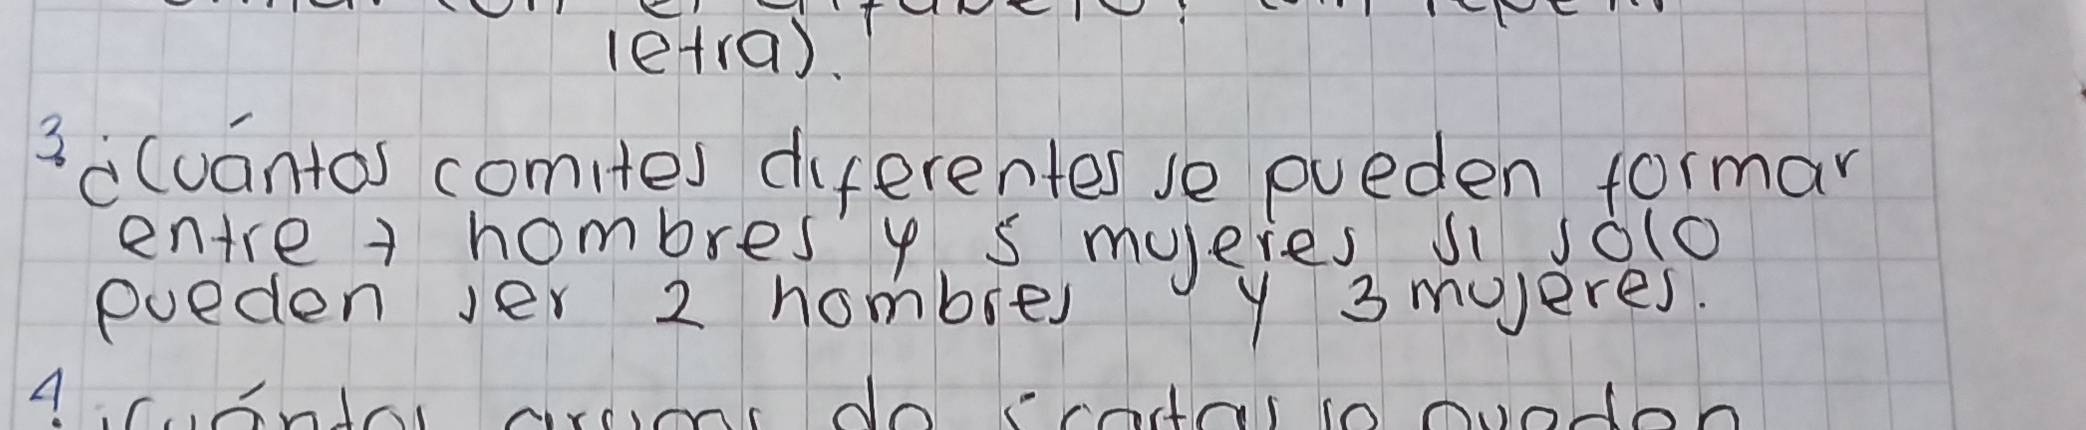 letra).
3. ¿Cuántos comites diferentes se pueden formar
entre 7 hombres y 5 mujeres si sólo
pueden ser 2 hombres y 3 mujeres.
4. ¿Cuántos de cartas se pueden